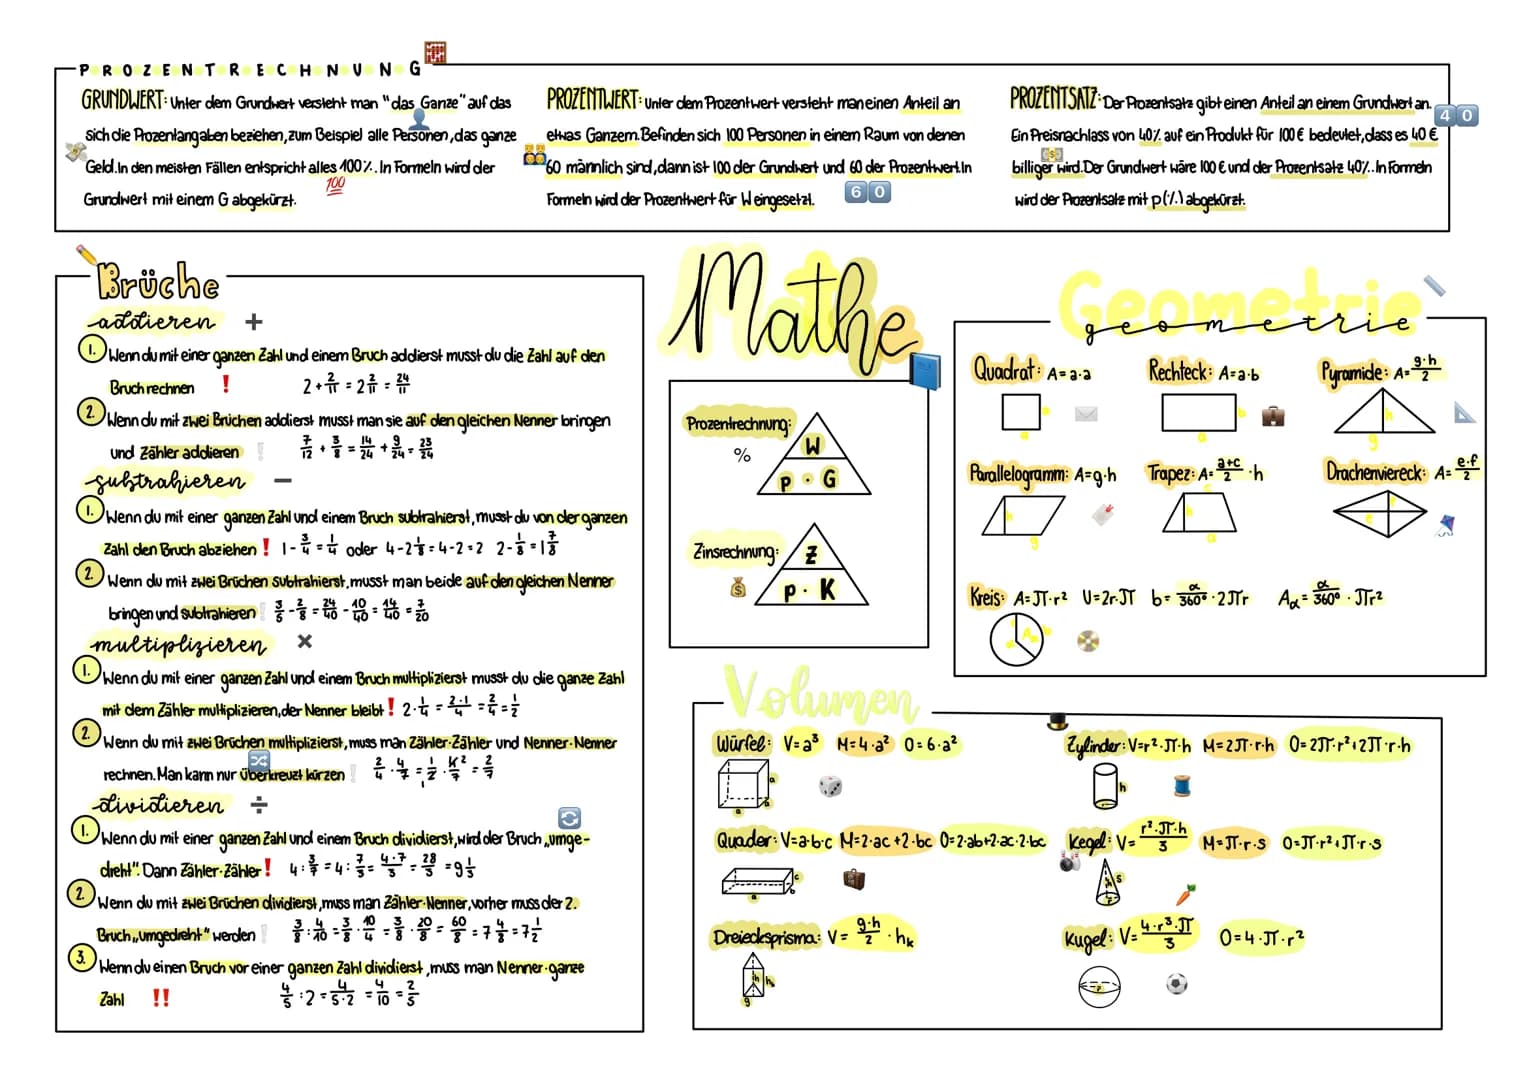 PROZENTRECHNUNG
GRUNDWERT: Unter dem Grundwert versteht man "das Ganze" auf das
sich die Prozentangaben beziehen, zum Beispiel alle Personen, das ganze
Geld. In den meisten Fällen entspricht alles 100%. In Formeln wird der
Grundwert mit einem G abgekürzt.
100
PROZENTWERT: Unter dem Prozentwert versteht man einen Anteil an
etwas Ganzem. Befinden sich 100 Personen in einem Raum von denen
60 männlich sind, dann ist 100 der Grundwert und 60 der Prozentwert. In
Formeln wird der Prozentwert für W eingesetzt.
60
PROZENTSATZ: Der Prozentsatz gibt einen Anteil an einem Grundwert an.
40
Ein Preisnachlass von 40% auf ein Produkt für 100€ bedeutet, dass es 40€
billiger wird. Der Grundwert wäre 100€ und der Prozentsatz 40%. In Formeln
wird der Prozentsatz mit p(%) abgekürzt.
Brüche
addieren +
1. Wenn du mit einer ganzen Zahl und einem Bruch addierst musst du die Zahl auf den
Bruch rechnen ! 2 + 2/11 = 2 2/11 = 24/11
2. Wenn du mit zwei Brüchen addierst musst man sie auf den gleichen Nenner bringen
und Zähler addieren ! 7/12 + 3/8 = 14/24 + 9/24 = 23/24
subtrahieren −
1. Wenn du mit einer ganzen Zahl und einem Bruch subtrahierst, musst du von der ganzen
Zahl den Bruch abziehen ! 1 - 3/4 = 1/4 oder 4 - 2 1/8 = 4 - 2 = 2 2 - 1/8 = 1 7/8
2. Wenn du mit zwei Brüchen subtrahierst, musst man beide auf den gleichen Nenner
bringen und subtrahieren ! 3/5 - 2/8 = 24/40 - 10/40 = 14/40 = 7/20
multiplizieren ×
1. Wenn du mit einer ganzen Zahl und einem Bruch multiplizierst musst du die ganze Zahl
mit dem Zähler multiplizieren, der Nenner bleibt ! 2 · 1/4 = 2·1/4 = 2/4 = 1/2
2. Wenn du mit zwei Brüchen multiplizierst, muss man Zähler·Zähler und Nenner·Nenner
rechnen. Man kann nur überkreuzt kürzen !
dividieren ÷
1. Wenn du mit einer ganzen Zahl und einem Bruch dividierst, wird der Bruch „umge-
dreht". Dann Zähler·Zähler ! 4 : 3/7 = 4 : 7/3 = 4·7/3 = 28/3 = 9 1/3
2. Wenn du mit zwei Brüchen dividierst, muss man Zähler·Nenner, vorher muss der 2.
Bruch „umgedreht" werden ! 3/8 : 4/10 = 3/8 · 10/4 = 3/8 · 20/8 = 60/8 = 7 4/8 = 7 1/2
3. Wenn du einen Bruch vor einer ganzen Zahl dividierst, muss man Nenner·ganze
Zahl !! 4/5 : 2 = 4/5·2 = 4/10 = 2/5
Mathe
Prozentrechnung:
%
W
p · G
Zinsrechnung:
Z
p · K
Geometrie
geometrie
Quadrat: A=a·a
a
a
Rechteck: A=a·b
b
a
Pyramide: A= g·h/2
h
g
Parallelogramm: A=g·h
h
g
Trapez: A= a+c/2 · h
h
a
Drachenviereck: A= e·f/2
e
f
Kreis: A=π·r² U=2r·π b= α/360° · 2πr Aα= α/360° · πr²
Volumen
Würfel: V=a³ M=4·a² O=6·a²
a
a
a
Quader: V=a·b·c M=2·ac+2·bc O=2·ab+2·ac·2·bc
c
b
a
Dreiecksprisma: V= g·h/2 · hk
h
hk
g
Zylinder: V=r²·π·h M=2π·r·h O=2π·r²+2π·r·h
h
r
Kegel: V= r²·π·h/3 M=π·r·s O=π·r²+π·r·s
s
h
r
Kugel: V= 4·r³·π/3 O=4·π·r²
r